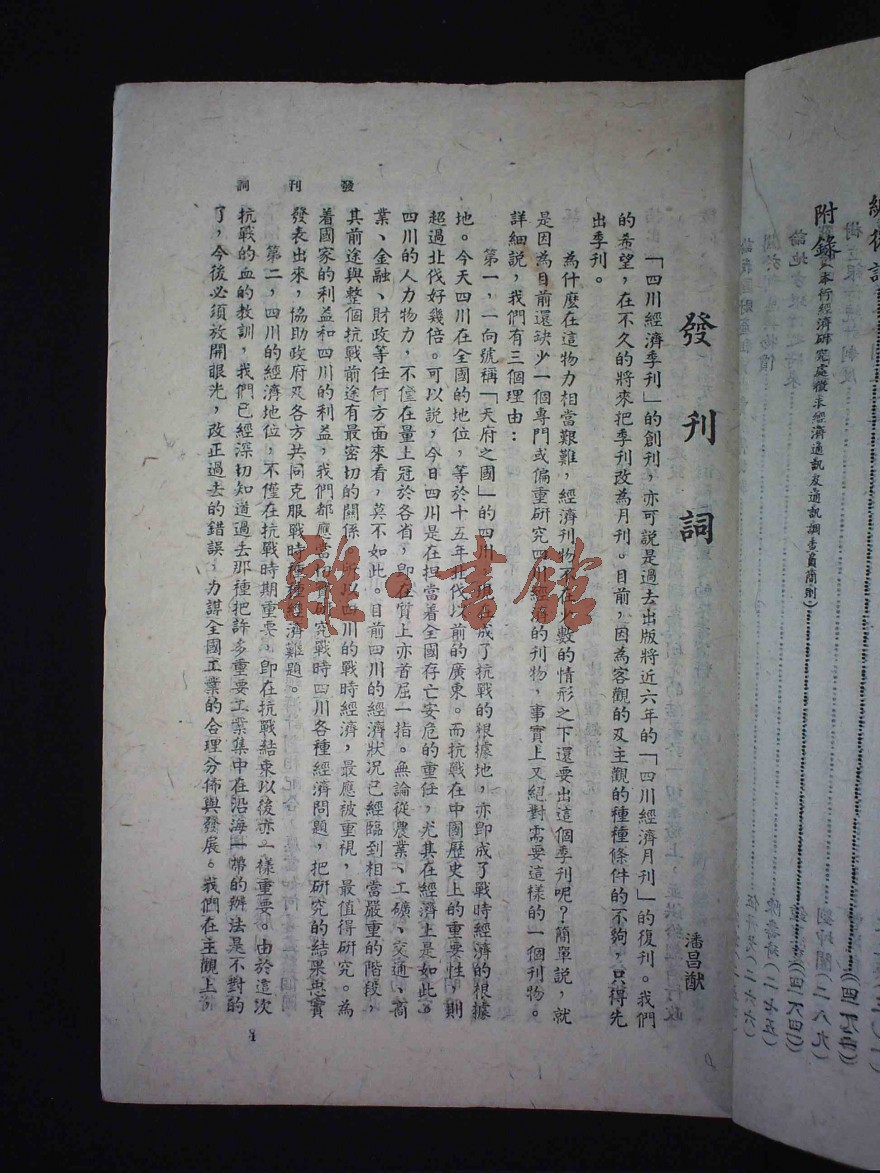 附錄
本行經濟研究處徵求經濟通訊及通訊調查員簡則
發刊詞
潘昌猷
「四川經濟季刊」的創刊，亦可說是過去出版將近六年的「四川經濟月刊」的復刊。我們
的希望，在不久的將來把季刊改為月刊。目前，因為客觀的及主觀的種種條件的不夠，只得先
出季刊。
為什麼在這物力相當艱難，經濟刊物不在少數的情形之下還要出這個季刊呢？簡單說，就
是因為目前還缺少一個專門或偏重研究四川經濟的刊物，事實上又絕對需要這樣的一個刊物。
詳細說，我們有三個理由：
第一，一向號稱「天府之國」的四川，現在成了抗戰的根據地，亦即成了戰時經濟的根據
地。今天四川在全國的地位，等於十五年北伐以前的廣東。而抗戰在中國歷史上的重要性，則
超過北伐好幾倍。可以說，今日四川是在担當着全國存亡安危的重任，尤其在經濟上是如此。
四川的人力物力，不僅在量上冠於各省，即在質上亦首屈一指。無論從農業、工礦、交通、商
業、金融、財政等任何方面來看，莫不如此。目前四川的經濟狀况已經臨到相當嚴重的階段，
其前途與整個抗戰前途有最密切的關係，所以四川的戰時經濟，最應被重視，最值得研究。為
着國家的利益和四川的利益，我們都應當研究戰時四川各種經濟問題，把研究的結果忠實
發表出來，協助政府及各方共同克服戰時種種經濟難題。
第二，四川的經濟地位，不僅在抗戰時期重要，即在抗戰結束以後亦一樣重要。由於這次
抗戰的血的教訓，我們已經深切知道過去那種把許多重要工業集中在沿海一帶的辦法是不對的
了，今後必須放開眼光，改正過去的錯誤，力謀全國工業的合理分佈與發展。我們在主觀上
發刊詞
1
雅·書館